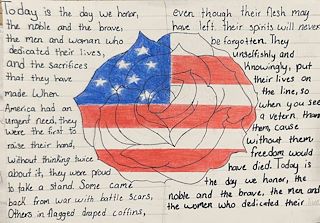 Today is the day we honor,
the noble and the brave,
the men and woman who
dedicated their lives,
and the sacrifices
that they have
made. When
America had an
urgent need, they
were the first to
raise their hand,
without thinking twice
about it, they were proud
to take a stand. Some came
back from war with battle scars,
Others in flagged draped coffins,
even though their flesh may
have left. their spirits will never
be forgotten. They
unselfishly and
knowingly, put
their lives on
the line, so
when you see
a vetern, thank
them, cause
without them
freedom would
have died. Today is
the day we honor, the
noble and the brave, the men and
the women who dedicated their